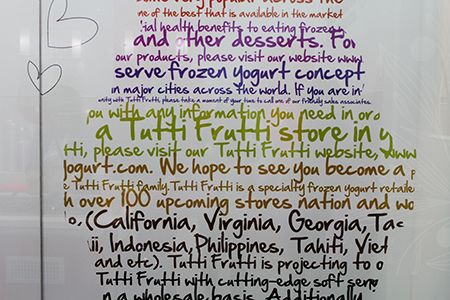 some very popular across the
ne of the best that is available in the market
ial health benefits to eating frozen
and other desserts. For
our products, please visit our website www
serve frozen yogurt concept
in major cities across the world. If you are in
unity with Tutti Frutti, please take a moment of your time to call one of our friendly sales associates.
ou with any information you need in oro
a Tutti Frutti store in y
tti, please visit our Tutti Frutti website, www
yogurt.com. We hope to see you become a p
e Tutti Frutti family. Tutti Frutti is a specialty frozen yogurt retaile
h over 100 upcoming stores nation and wo
o. (California, Virginia, Georgia, Tac
ii, Indonesia, Philippines, Tahiti, Viet
and etc). Tutti Frutti is projecting to o
Tutti Frutti with cutting-edge soft serv
n a wholesale basis. Additionally